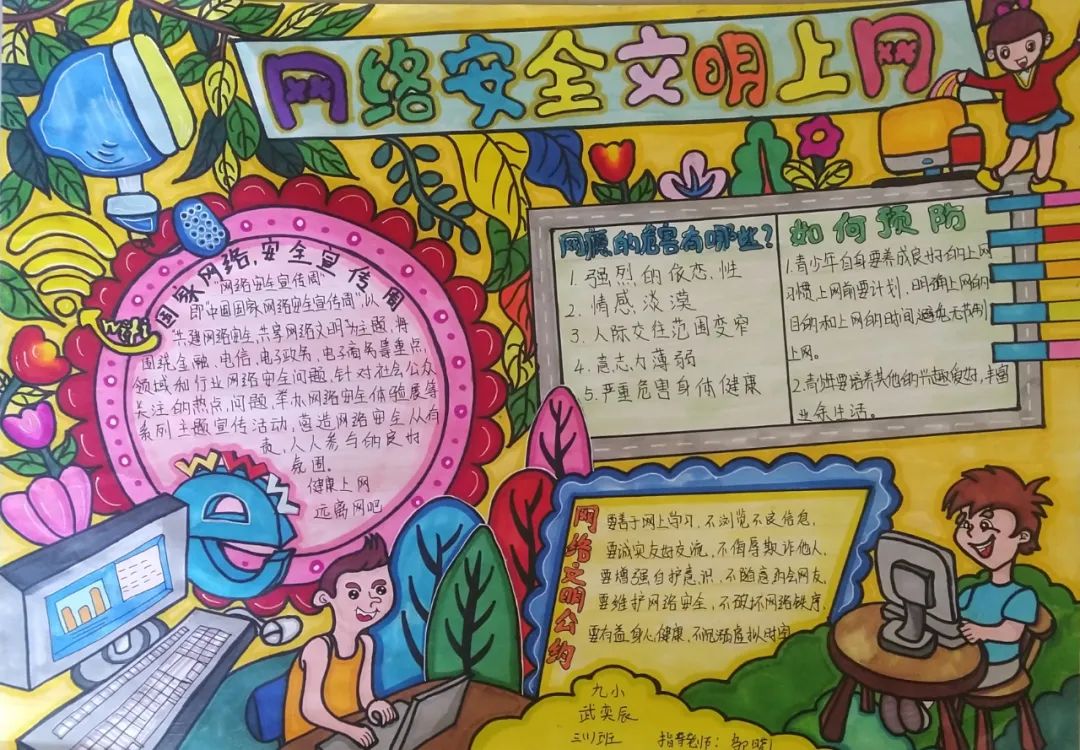 网络安全文明上网
国家网络安全宣传周
"网络安全宣传周"
即"中国国家网络安全宣传周",以
"共建网络安全,共享网络文明"为主题,将
围绕金融、电信、电子政务、电子商务等重点
领域和行业网络安全问题,针对社会公众
关注的热点问题,举办网络安全体验展等
系列主题宣传活动,营造网络安全人人有
责,人人参与的良好
氛围。
健康上网
远离网吧
WWW
e
网瘾的危害有哪些?
1.强烈的依恋性
2.情感淡漠
3.人际交往范围变窄
4.意志力薄弱
5.严重危害身体健康
如何预防
1.青少年自身要养成良好的上网
习惯上网前要计划,明确上网的
目的和上网的时间,避免无节制
上网。
2.青少年要培养其他的兴趣爱好,丰富
业余生活。
网络文明公约
要善于网上学习,不浏览不良信息,
要诚实友好交流,不侮辱欺诈他人,
要增强自护意识,不随意约会网友,
要维护网络安全,不破坏网络秩序,
要有益身心健康,不沉溺虚拟时空
九小
武奕辰
三(1)班
指导老师: